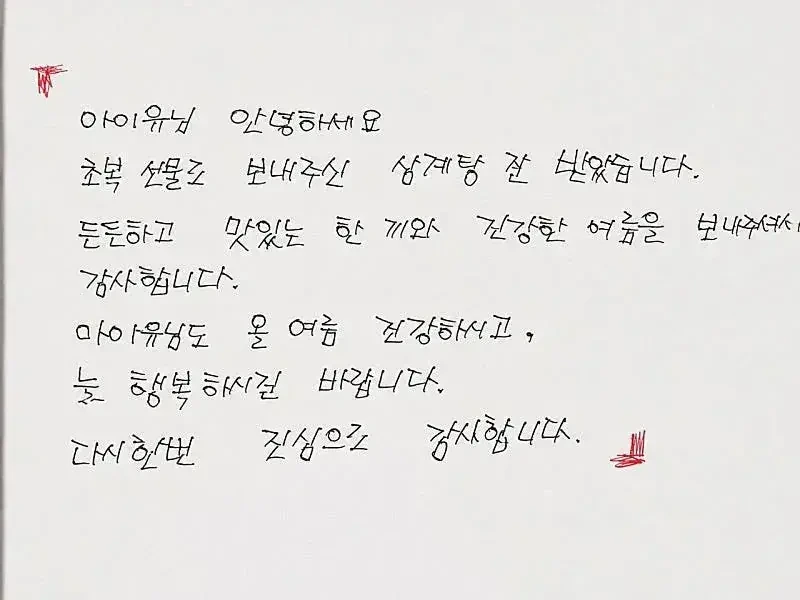 아이유님 안녕하세요
초복 선물로 보내주신 삼계탕 잘 받았습니다.
든든하고 맛있는 한 끼와 건강한 여름을 보내주셔서
감사합니다.
아이유님도 올 여름 건강하시고,
늘 행복하시길 바랍니다.
다시한번 진심으로 감사합니다.